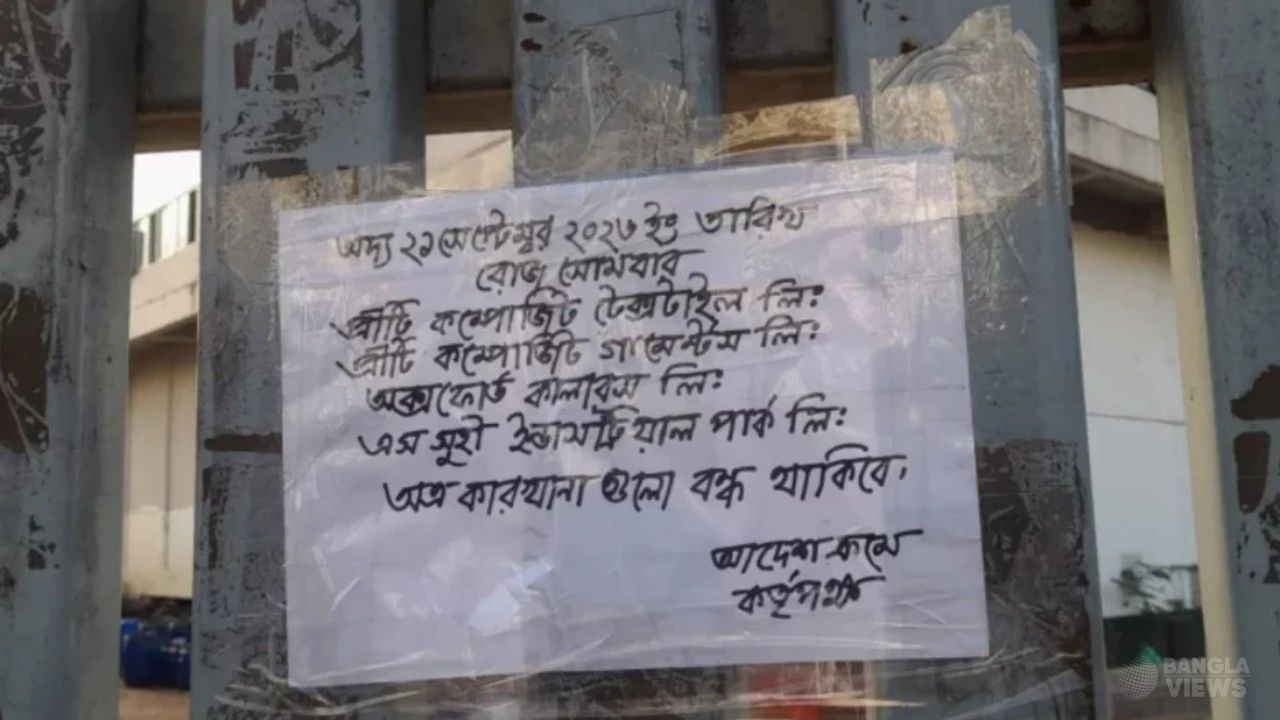 অদ্য ২১ সেপ্টেম্বর ২০২৬ ইং তারিখ
রোজ সোমবার
প্রীটি কম্পোজিট টেক্সটাইল লিঃ
প্রীটি কম্পোজিট গার্মেন্টস লিঃ
অক্সফোর্ড কালারস লিঃ
এস সুহী ইন্ডাসট্রিয়াল পার্ক লিঃ
অত্র কারখানা গুলো বন্ধ থাকিবে।
আদেশ ক্রমে
কর্তৃপক্ষ
BANGLA
VIEWS